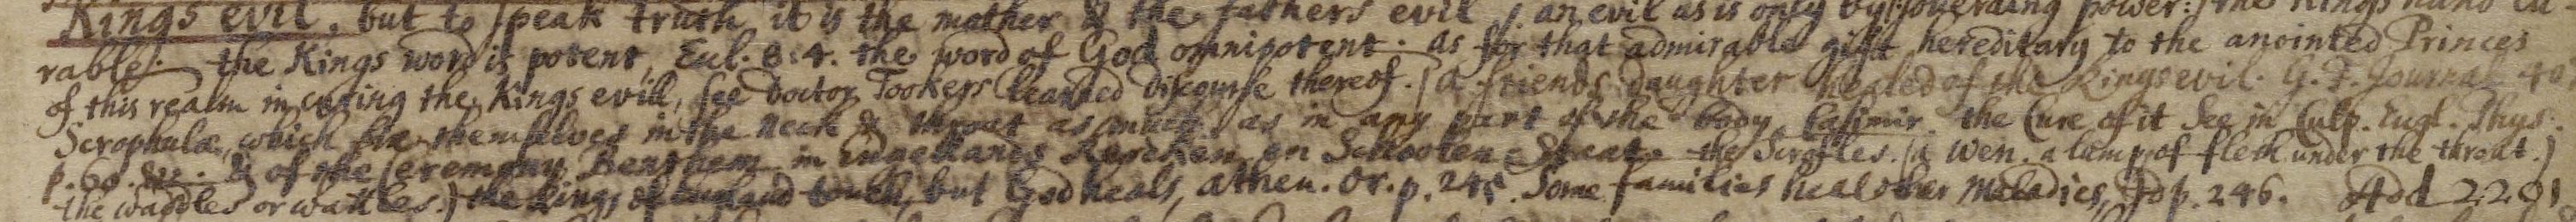 Kings evil, but to speak truth it is the mother & the fathers evil, an evil as is only by sovereing power: the Kings hand cu-
rable. the Kings word is potent, Eccl. 8:4. the word of God omnipotent. as for that admirable gift hereditary to the anointed Princes
of this realm in curing the Kings evill, see Doctor Tookers learned discourse thereof. (a friends daughter healed of the Kings evil. G. F. Journal 40
Scrophulæ, which fix themselves in the neck & throat as much as in any part of the body. Casimir. the Cure of it see in Culp. Engl. Phys.
p. 60. & of the Ceremony Benthem in Engellands Kercken en Schoolen Staat. the Scrofles. (a wen. a lump of flesh under the throat.)
the waddles or wattles.) the Kings of England touch, but God heals, Athen. Or. p. 245. Some families heal other Maladies, Jd p. 246. Add 2201